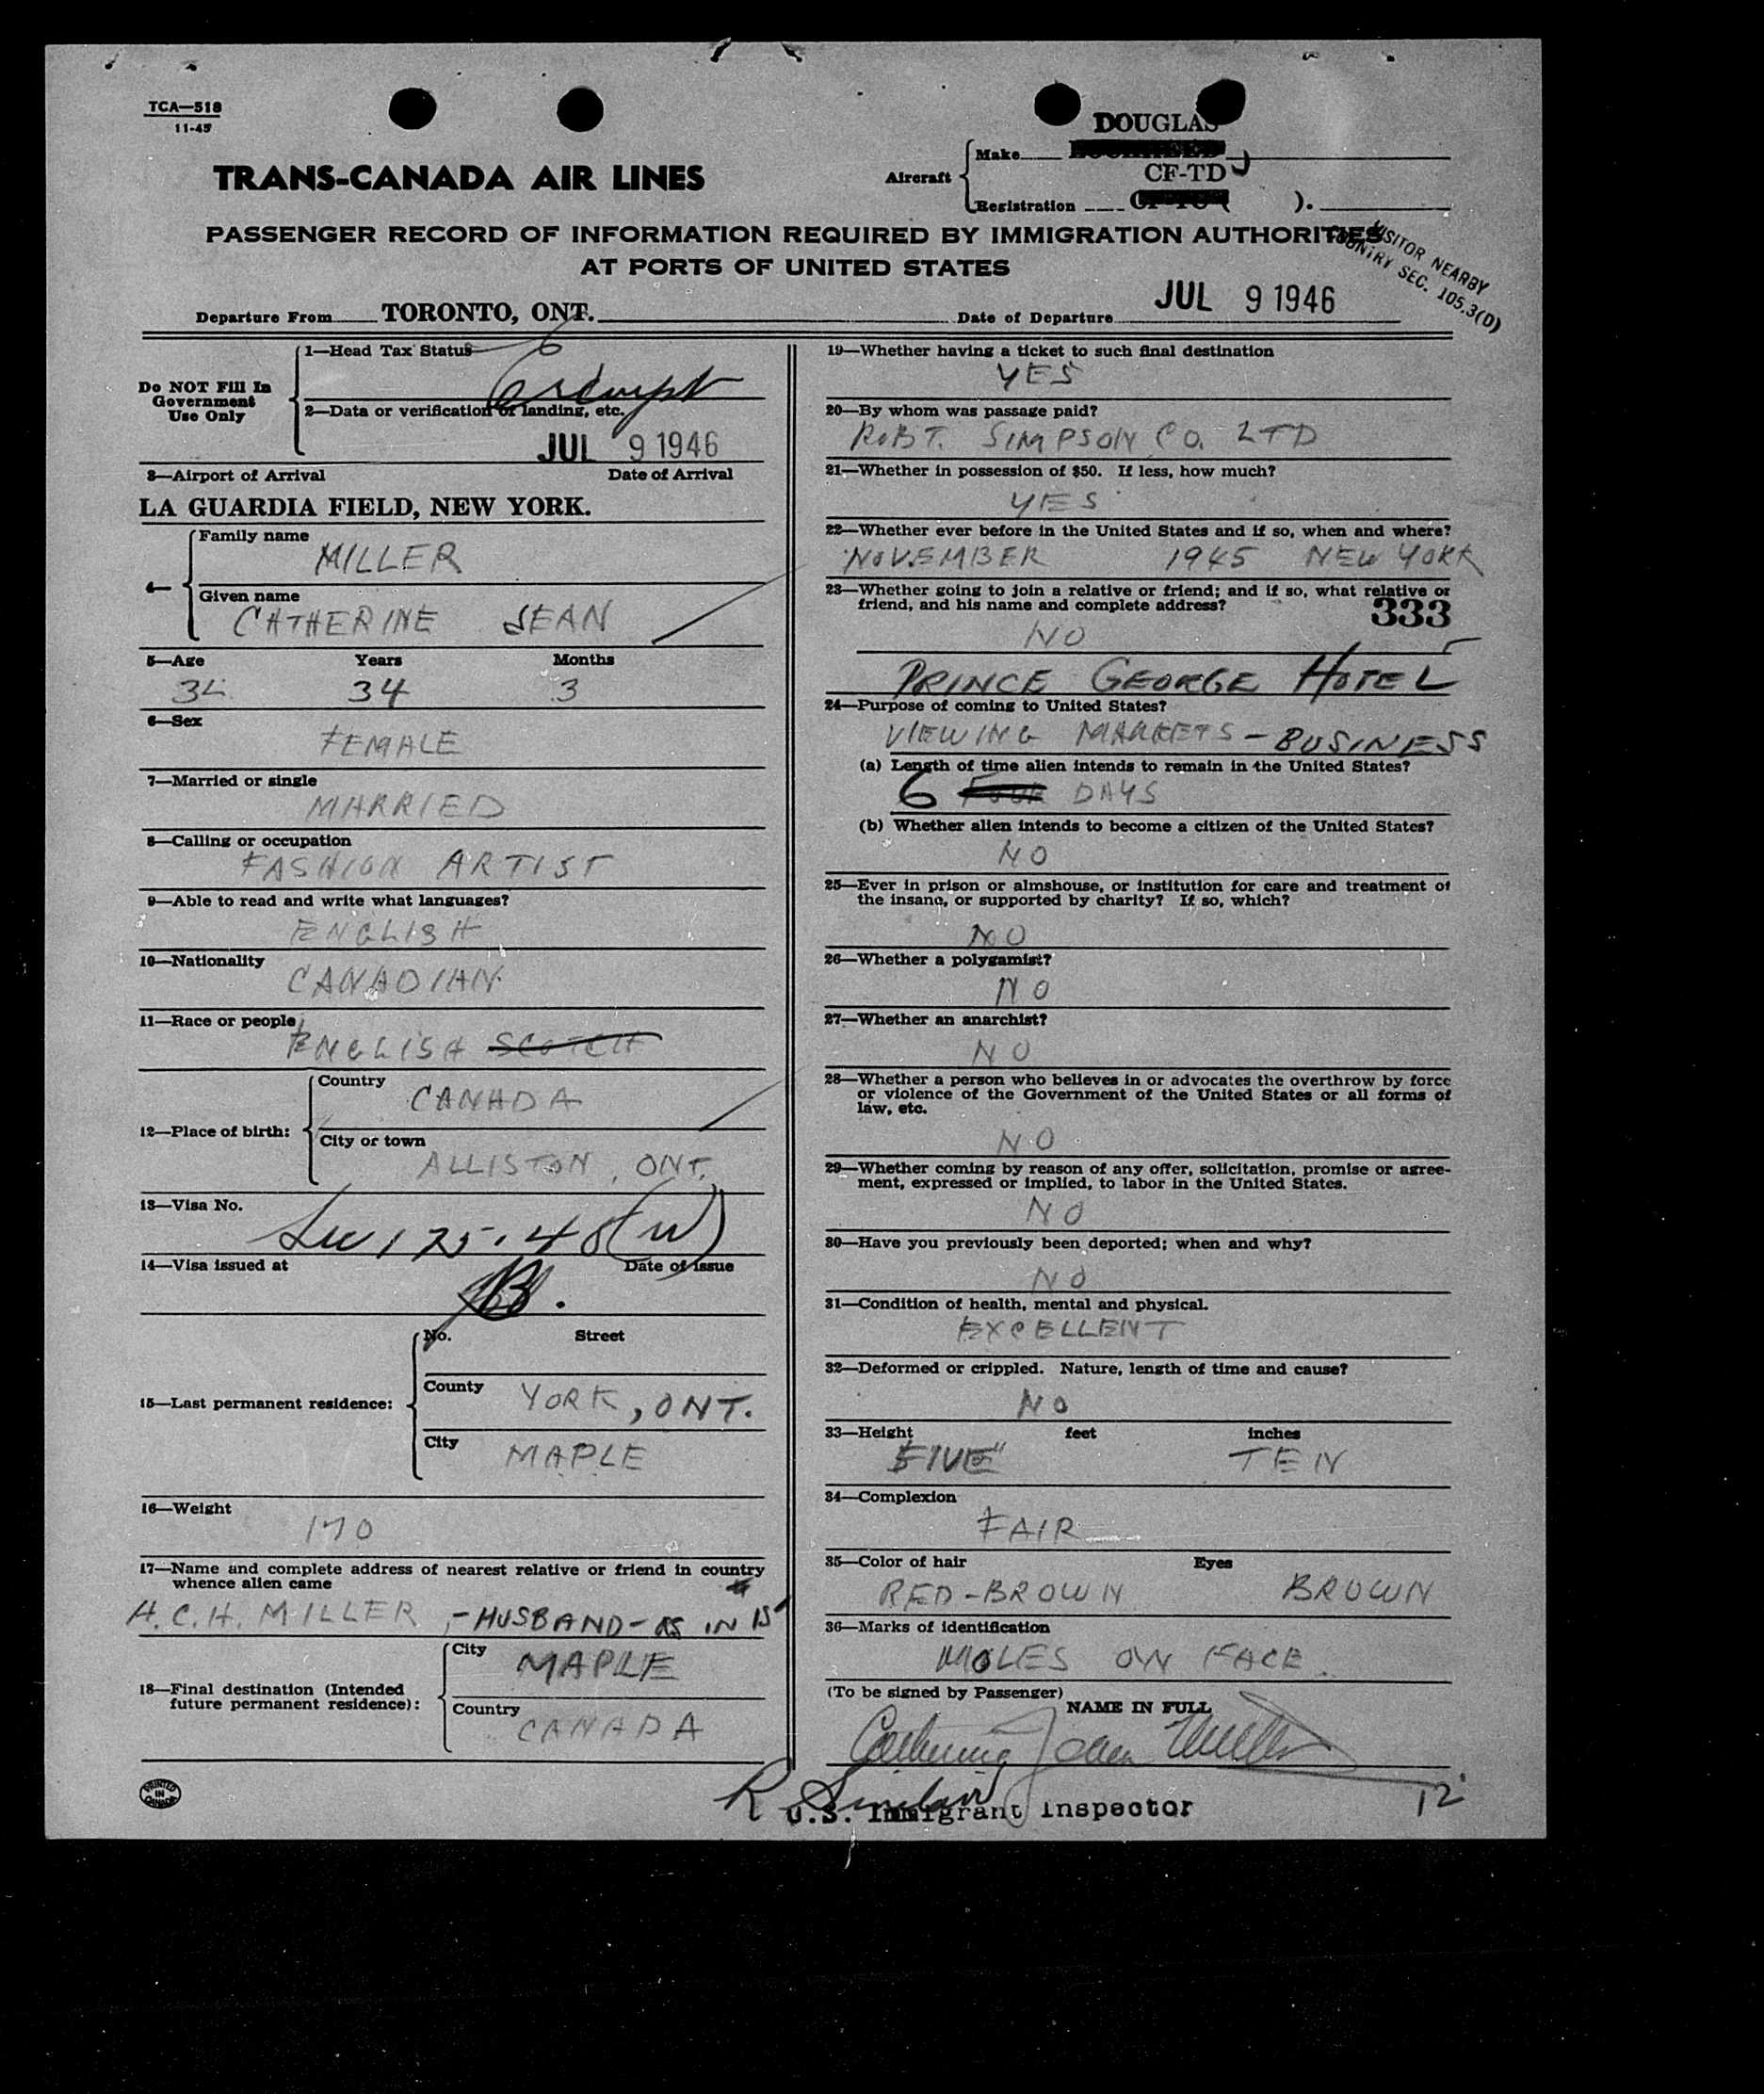 TCA—518
11-45
DOUGLAS
Aircraft
Make
TRANS-CANADA AIR LINES
CF-TDJ
Registration ).
PASSENGER RECORD OF INFORMATION REQUIRED BY IMMIGRATION AUTHORITIES
AT PORTS OF UNITED STATES
VISITOR NEARBY
COUNTRY SEC. 105.3(D)
Departure From TORONTO, ONT. Date of Departure JUL 9 1946
Do NOT Fill In
Government
Use Only
1—Head Tax Status
exempt
2—Data or verification of landing, etc.
JUL 9 1946
3—Airport of Arrival Date of Arrival
LA GUARDIA FIELD, NEW YORK.
4—
Family name
MILLER
Given name
CATHERINE JEAN
5—Age Years Months
34 34 3
6—Sex
FEMALE
7—Married or single
MARRIED
8—Calling or occupation
FASHION ARTIST
9—Able to read and write what languages?
ENGLISH
10—Nationality
CANADIAN
11—Race or people
ENGLISH SCOTCH
12—Place of birth:
Country
CANADA
City or town
ALLISTON, ONT.
13—Visa No.
14—Visa issued at Date of issue
15—Last permanent residence:
No. Street
County YORK, ONT.
City MAPLE
16—Weight
170
17—Name and complete address of nearest relative or friend in country
whence alien came
H.C.H. MILLER, - HUSBAND - AS IN 15
18—Final destination (Intended
future permanent residence):
City MAPLE
Country
CANADA
PRINTED
IN
CANADA
19—Whether having a ticket to such final destination
YES
20—By whom was passage paid?
ROBT. SIMPSON CO. LTD
21—Whether in possession of $50. If less, how much?
YES
22—Whether ever before in the United States and if so, when and where?
NOVEMBER 1945 NEW YORK
23—Whether going to join a relative or friend; and if so, what relative or
friend, and his name and complete address? 333
NO
PRINCE GEORGE HOTEL
24—Purpose of coming to United States?
VIEWING MARKETS - BUSINESS
(a) Length of time alien intends to remain in the United States?
6 FOUR DAYS
(b) Whether alien intends to become a citizen of the United States?
NO
25—Ever in prison or almshouse, or institution for care and treatment of
the insane, or supported by charity? If so, which?
NO
26—Whether a polygamist?
NO
27—Whether an anarchist?
NO
28—Whether a person who believes in or advocates the overthrow by force
or violence of the Government of the United States or all forms of
law, etc.
NO
29—Whether coming by reason of any offer, solicitation, promise or agree-
ment, expressed or implied, to labor in the United States.
NO
30—Have you previously been deported; when and why?
NO
31—Condition of health, mental and physical.
EXCELLENT
32—Deformed or crippled. Nature, length of time and cause?
NO
33—Height feet inches
FIVE" TEN
34—Complexion
FAIR
35—Color of hair Eyes
RED-BROWN BROWN
36—Marks of identification
MOLES ON FACE.
(To be signed by Passenger)
NAME IN FULL
Catherine Jean Miller
R Sinclair
U.S. Immigrant Inspector
12